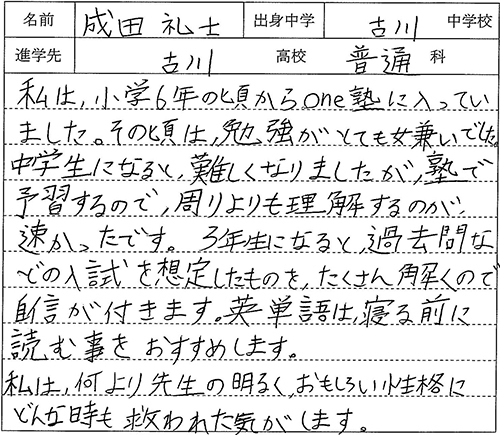 名前 成田 礼士 出身中学 古川 中学校
進学先 古川 高校 普通 科
私は,小学6年の頃からone塾に入ってい
ました。その頃は,勉強がとても嫌いでした。
中学生になると,難しくなりましたが,塾で
予習するので,周りよりも理解するのが,
速かったです。3年生になると,過去問な
どの入試を想定したものを,たくさん解くので
自信が付きます。英単語は,寝る前に
読む事をおすすめします。
私は,何より先生の明るく,おもしろい性格に
どんな時も救われた気がします。